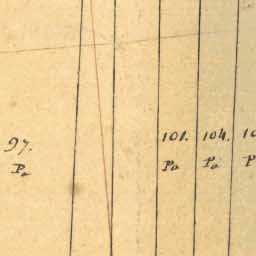 97.
Pa
101.
Pa
104.
Pa